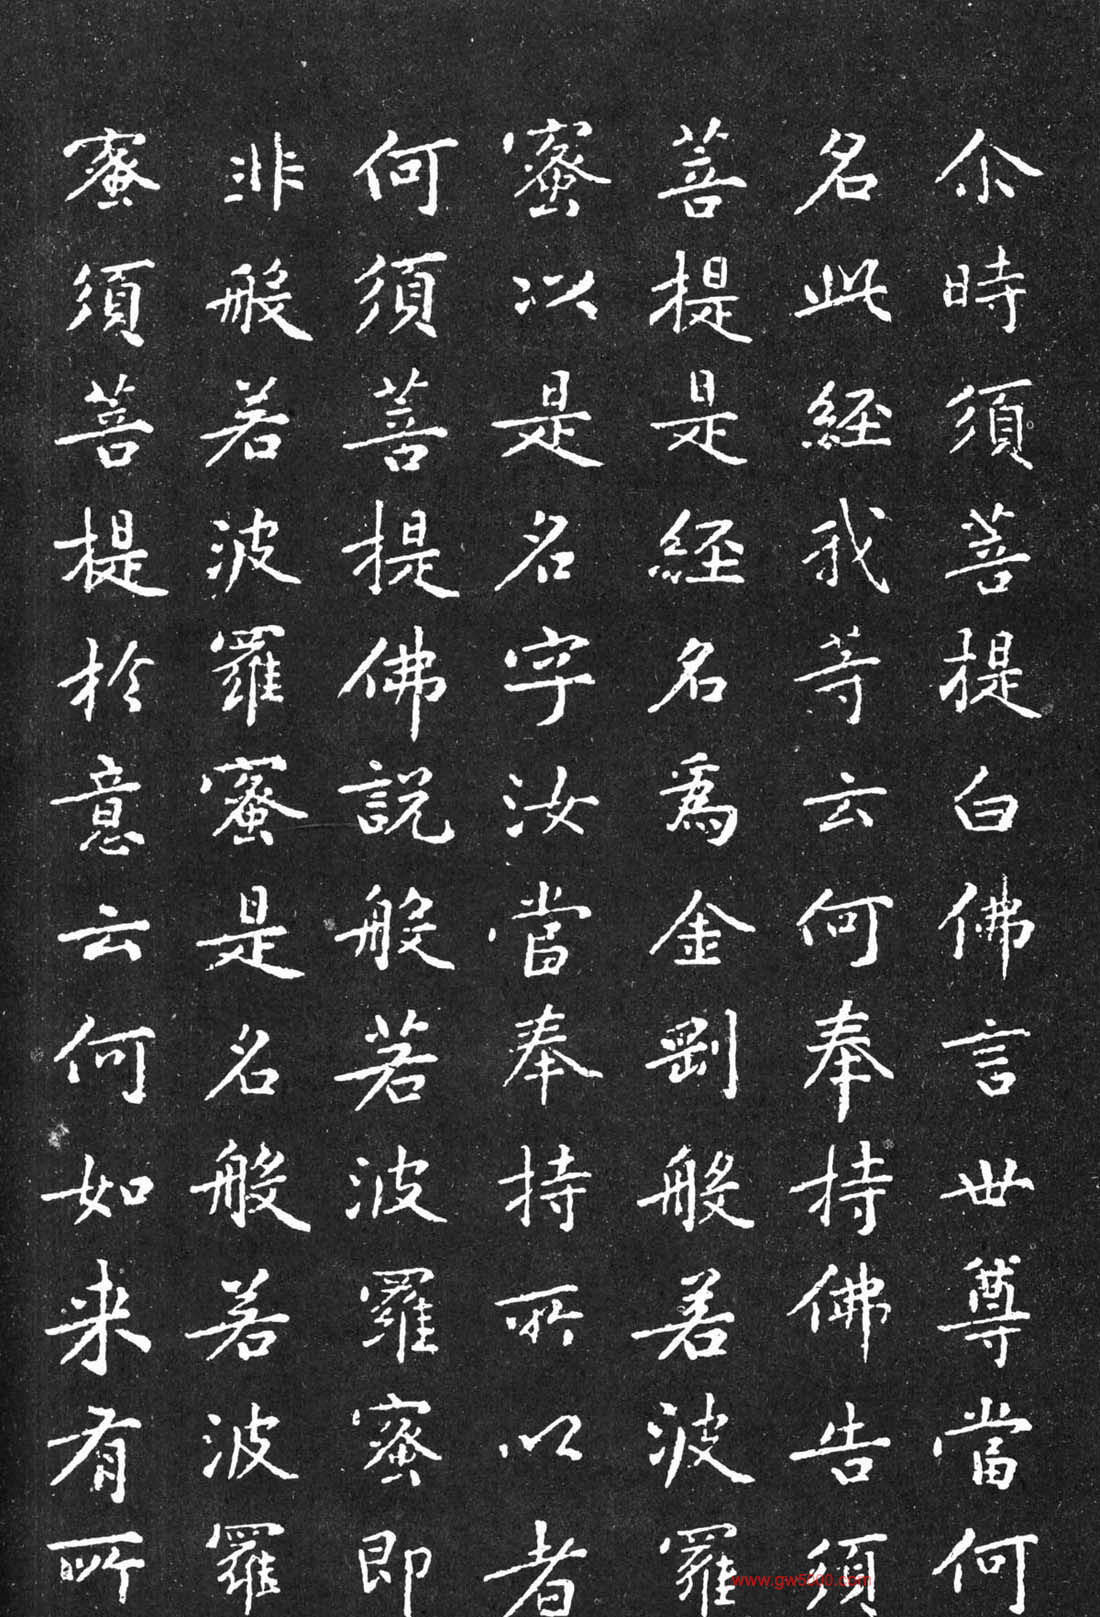 尒時須菩提白佛言世尊當何
名此經我等云何奉持佛告須
菩提是經名為金剛般若波羅
蜜以是名字汝當奉持所以者
何須菩提佛說般若波羅蜜即
非般若波羅蜜是名般若波羅
蜜須菩提於意云何如来有所
www.gw5000.com